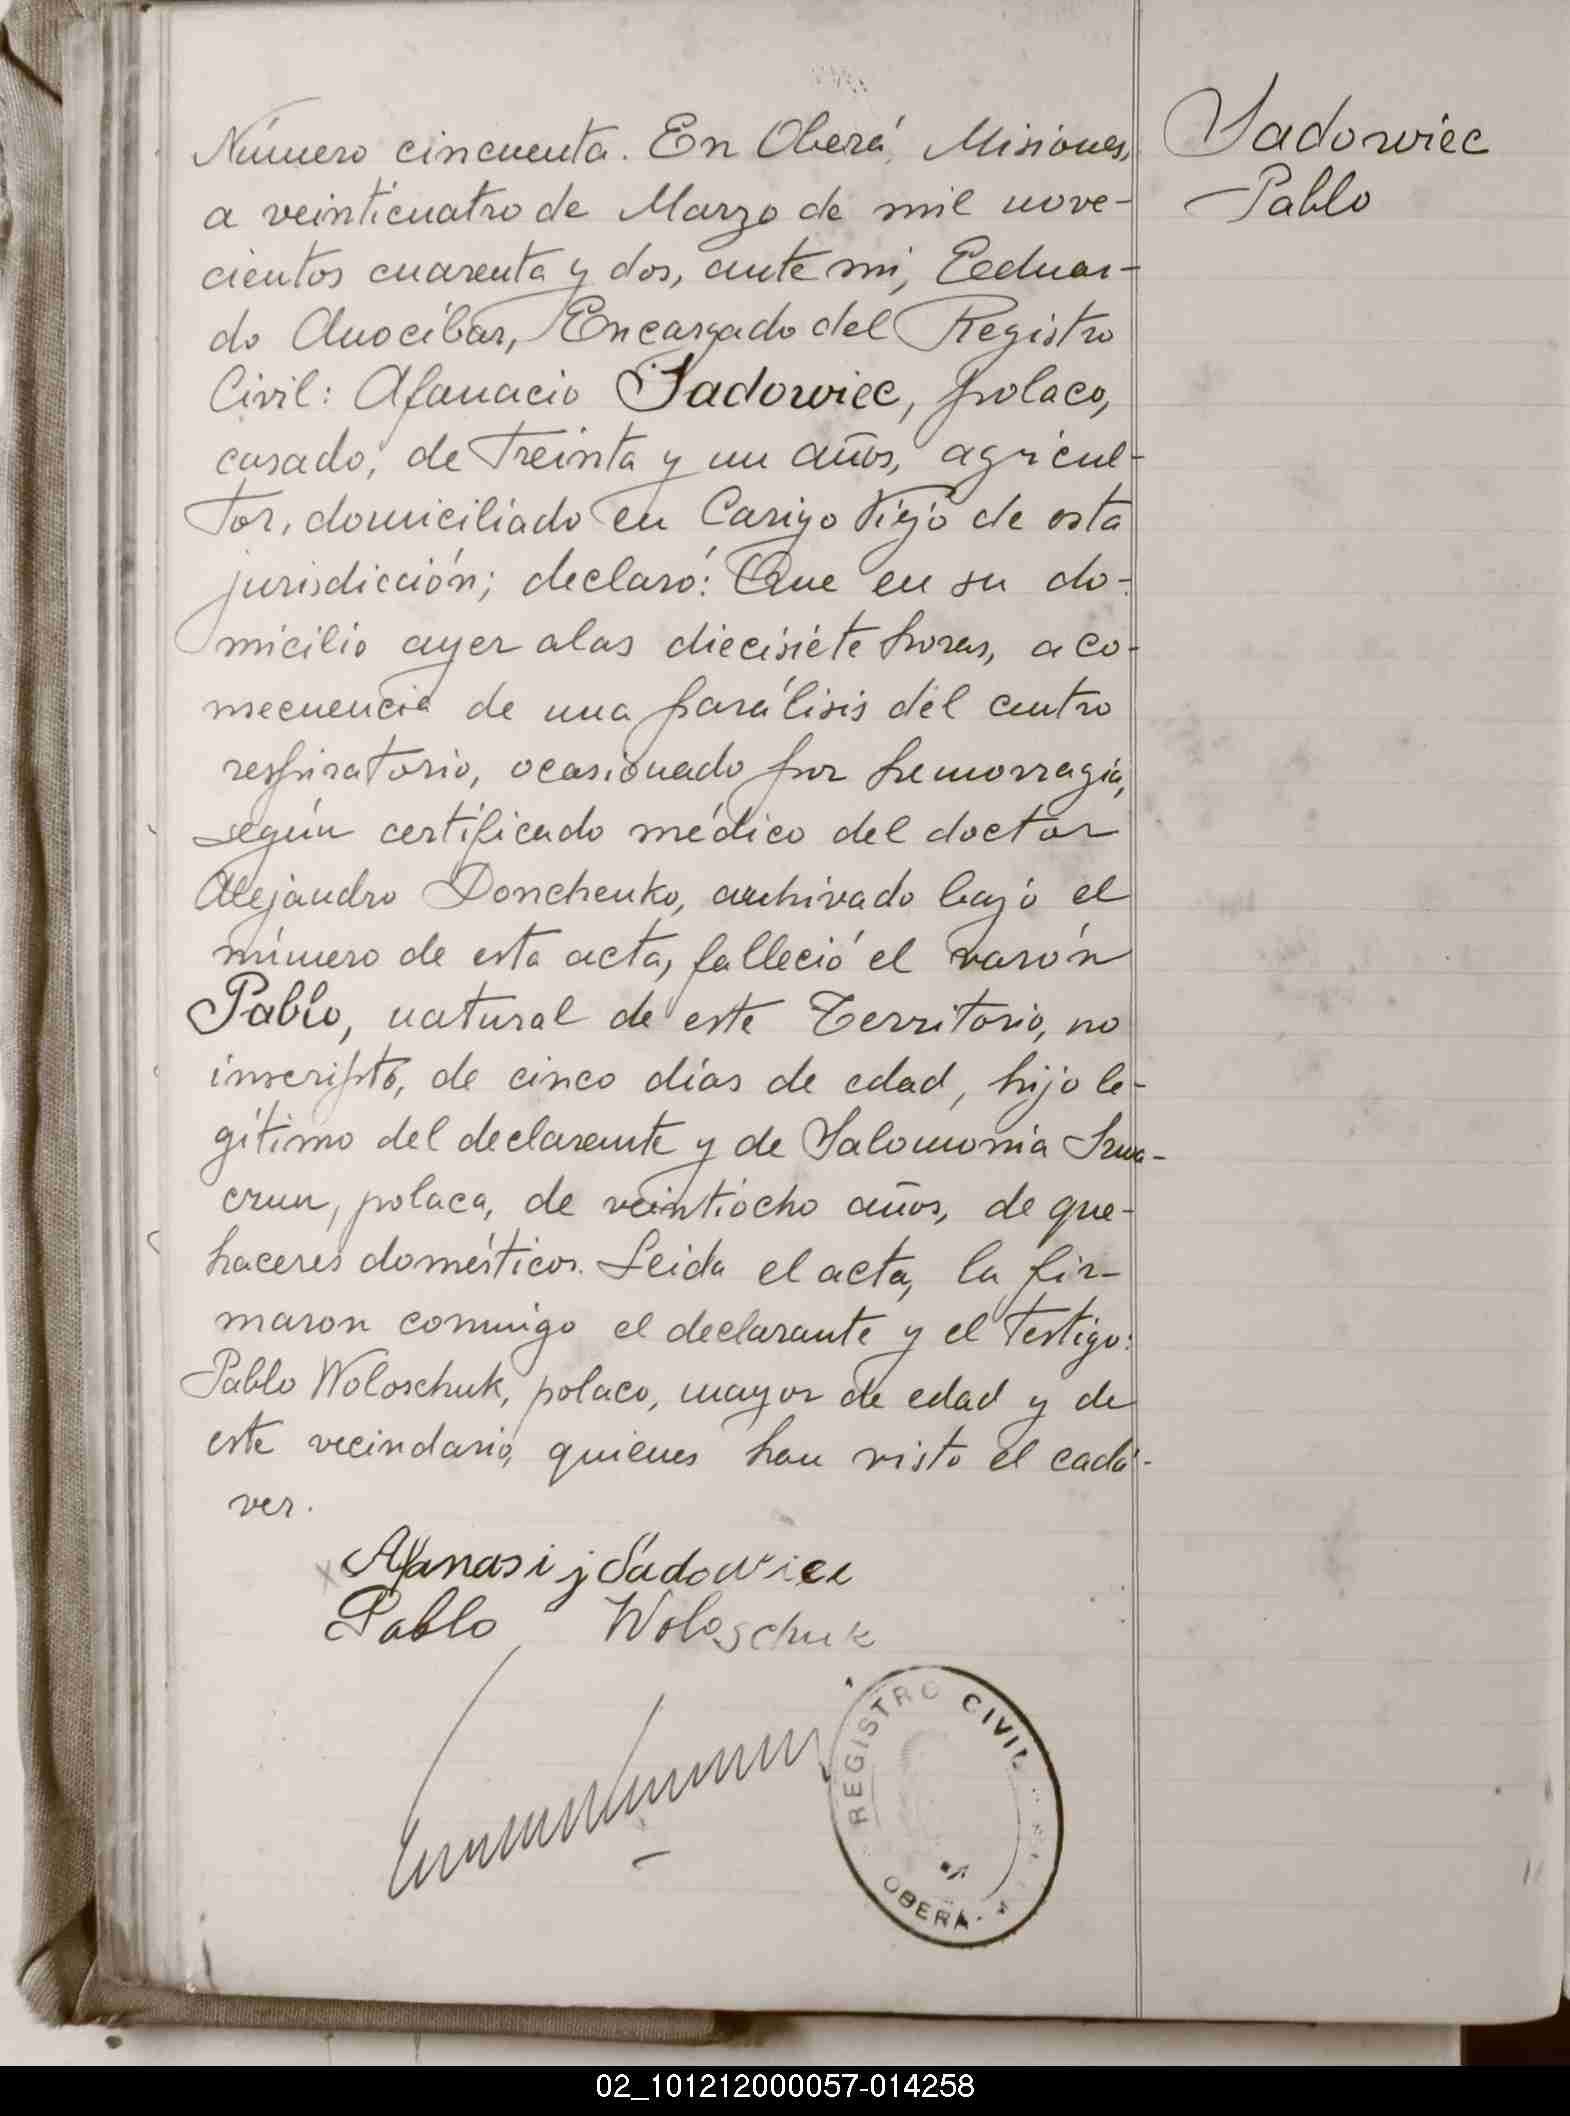 Sadowiec
Pablo
Número cincuenta. En Oberá, Misiones,
a veinticuatro de Marzo de mil nove-
cientos cuarenta y dos, ante mi, Eduar-
do Anocíbar, Encargado del Registro
Civil: Afanacio Sadowiec, polaco,
casado, de treinta y un años, agricul-
tor, domiciliado en Viejo de esta
jurisdicción; declaró: Que en su do-
micilio ayer a las diecisiete horas, a co-
nsecuencia de una parálisis del centro
respiratorio, ocasionado por hemorragia,
según certificado médico del doctor
Alejandro Donchenko, archivado bajo el
número de esta acta, falleció el varón
Pablo, natural de este Territorio, no
inscripto, de cinco días de edad, hijo le-
gítimo del declarante y de Salomonia
polaca, de veintiocho años, de que-
haceres domésticos. Leida el acta, la fir-
maron conmigo el declarante y el testigo:
Pablo Woloschuk, polaco, mayor de edad y de
este vecindario, quienes han visto el cadá-
ver.
Afanasij Sadowiec
Pablo Woloschuk
REGISTRO CIVIL
OBERA
02_101212000057-014258